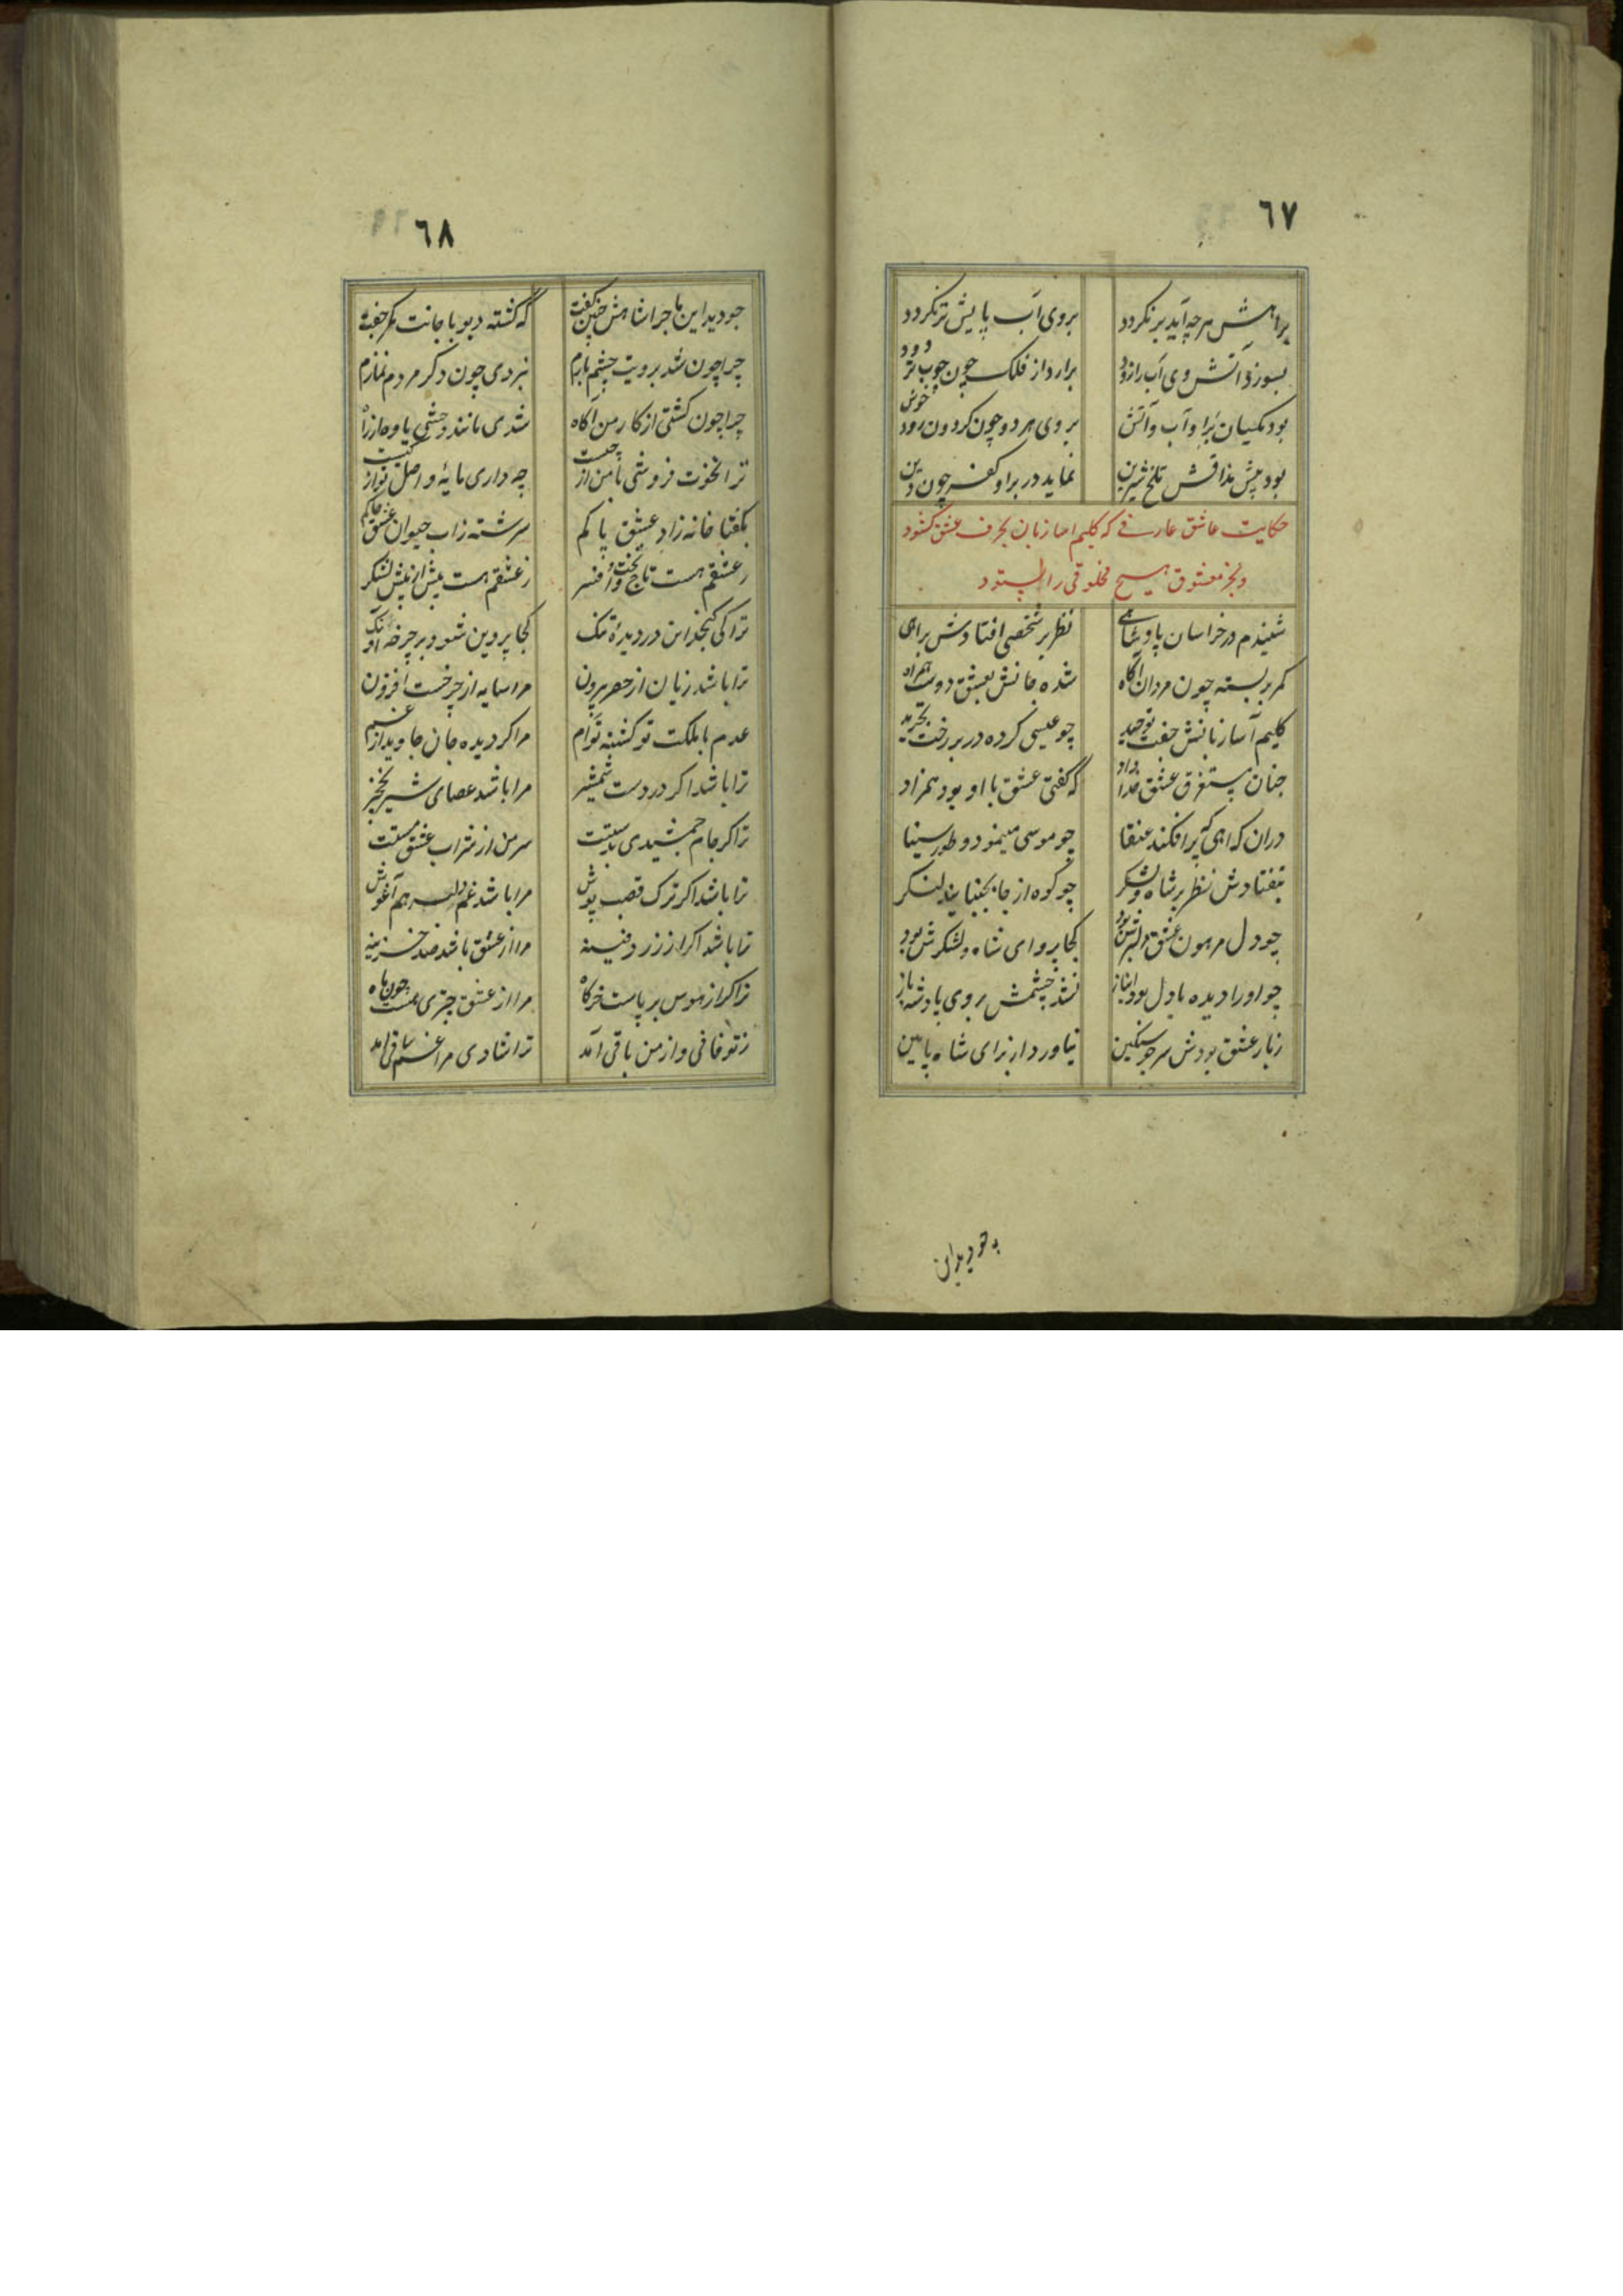 ٦٧
براهش هر چه آید برنکردد بروی آب پایش تر نکردد
بسوزد آتش وی آب را زود برارد از فلک چون چوب تر دود
بود یکسان برا و آب و آتش بروی هر دو چون کردون رود خوش
بود پیش مذاقش تلخ شیرین نماید در براو کفر چون دین
حکایت عاشق عارفی که کلیم اسا زبان بحرف عشق کشود
وبجز معشوق هیچ مخلوقی را نستود
شنیدم در خراسان پادشاهی نظر بر شخصی افتادش براهی
کمر بسته چون مردان آکاه شده جانش بعشق دوست همراه
کلیم آسا زبانش جفت توحید چو عیسی کرده در بر رخت تجرید
چنان مستغرق عشق خدا داد که کفتی عشق با او بود همزاد
دران که پر افکند عنقا چو موسی مینمود و طور سینا
نیفتادش نظر بر شاه و لشکر چو کوه از جا نجنباند لنکر
چو دل مرهون عشق دلبرش بود کجا پروای شاه و لشکرش بود
چو اورا دیده با دل بود انباز نشد چشمش بروی پادشه باز
زبار عشق بودش سر چو سنکین نیاورد از برای شاه پایین
چو دید این
٦٨
چو دید این ماجرا شاهش چنین کفت که کشته دیو با جانت مکر جفت
چرا چون شد برویت چشم بازم نبردی چون دکر مردم نمازم
چرا چون کشتی از کار من آکاه شدی مانند وحشی یاوه از راه
ترا نخوت فروشی با من از چیست چه داری مایهٔ و اصل تو از کیست
بکفتا خانه زاد عشق پاکم سرشته زاب حیوان عشق خاکم
زعشقم هست تاج و تخت و افسر زعشقم هست بیش از بیش لشکر
ترا کی کنجد این در دیدهٔ تنک کجا پروین شود بر چرخه اونک
ترا باشد زیان از حصر بیرون مرا سایه از چرخست افزون
عدم با ملکت تو کشته توام مرا کردیده جان جاوید از غم
ترا باشد اکر در دست شمشیر مرا باشد عصای شیر نخجیر
ترا کر جام جمشیدی بدستت سر من از شراب عشق مستت
ترا باشد اکر ترک قصب پوش مرا باشد غم دلبر هم آغوش
ترا باشد اکر از زر دفینه مرا از عشق باشد صد خزینه
ترا کر از هوس بر پاست خرکاه مرا از عشق چتری هست چون ماه
زتو فانی و از من باقی آمد ترا شادی مرا غم ساقی آمد